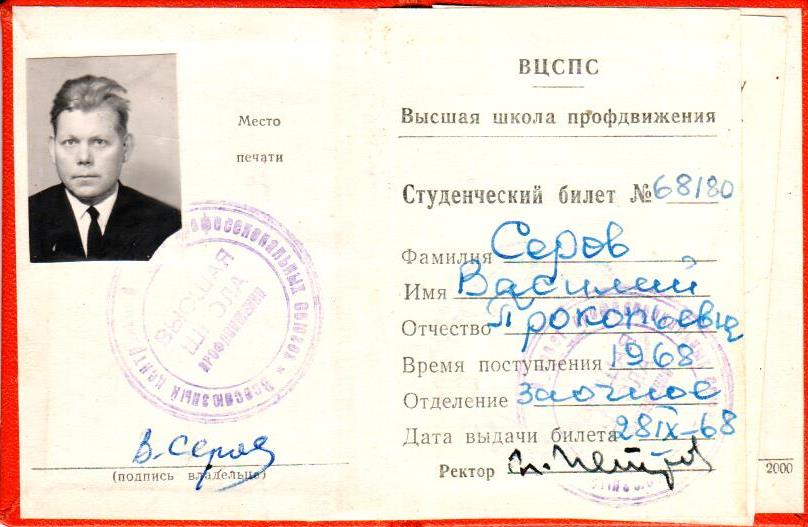 Место
печати
Всесоюзный центр профессиональных союзов
ВЫСШАЯ
ШКОЛА
ПРОФДВИЖЕНИЯ
В. Серов
(подпись владельца)
ВЦСПС
Высшая школа профдвижения
Студенческий билет № 68/80
Фамилия Серов
Имя Василий
Отчество Прокопьевич
Время поступления 1968
Отделение Заочное
Дата выдачи билета 28 IX-68
Ректор
2000